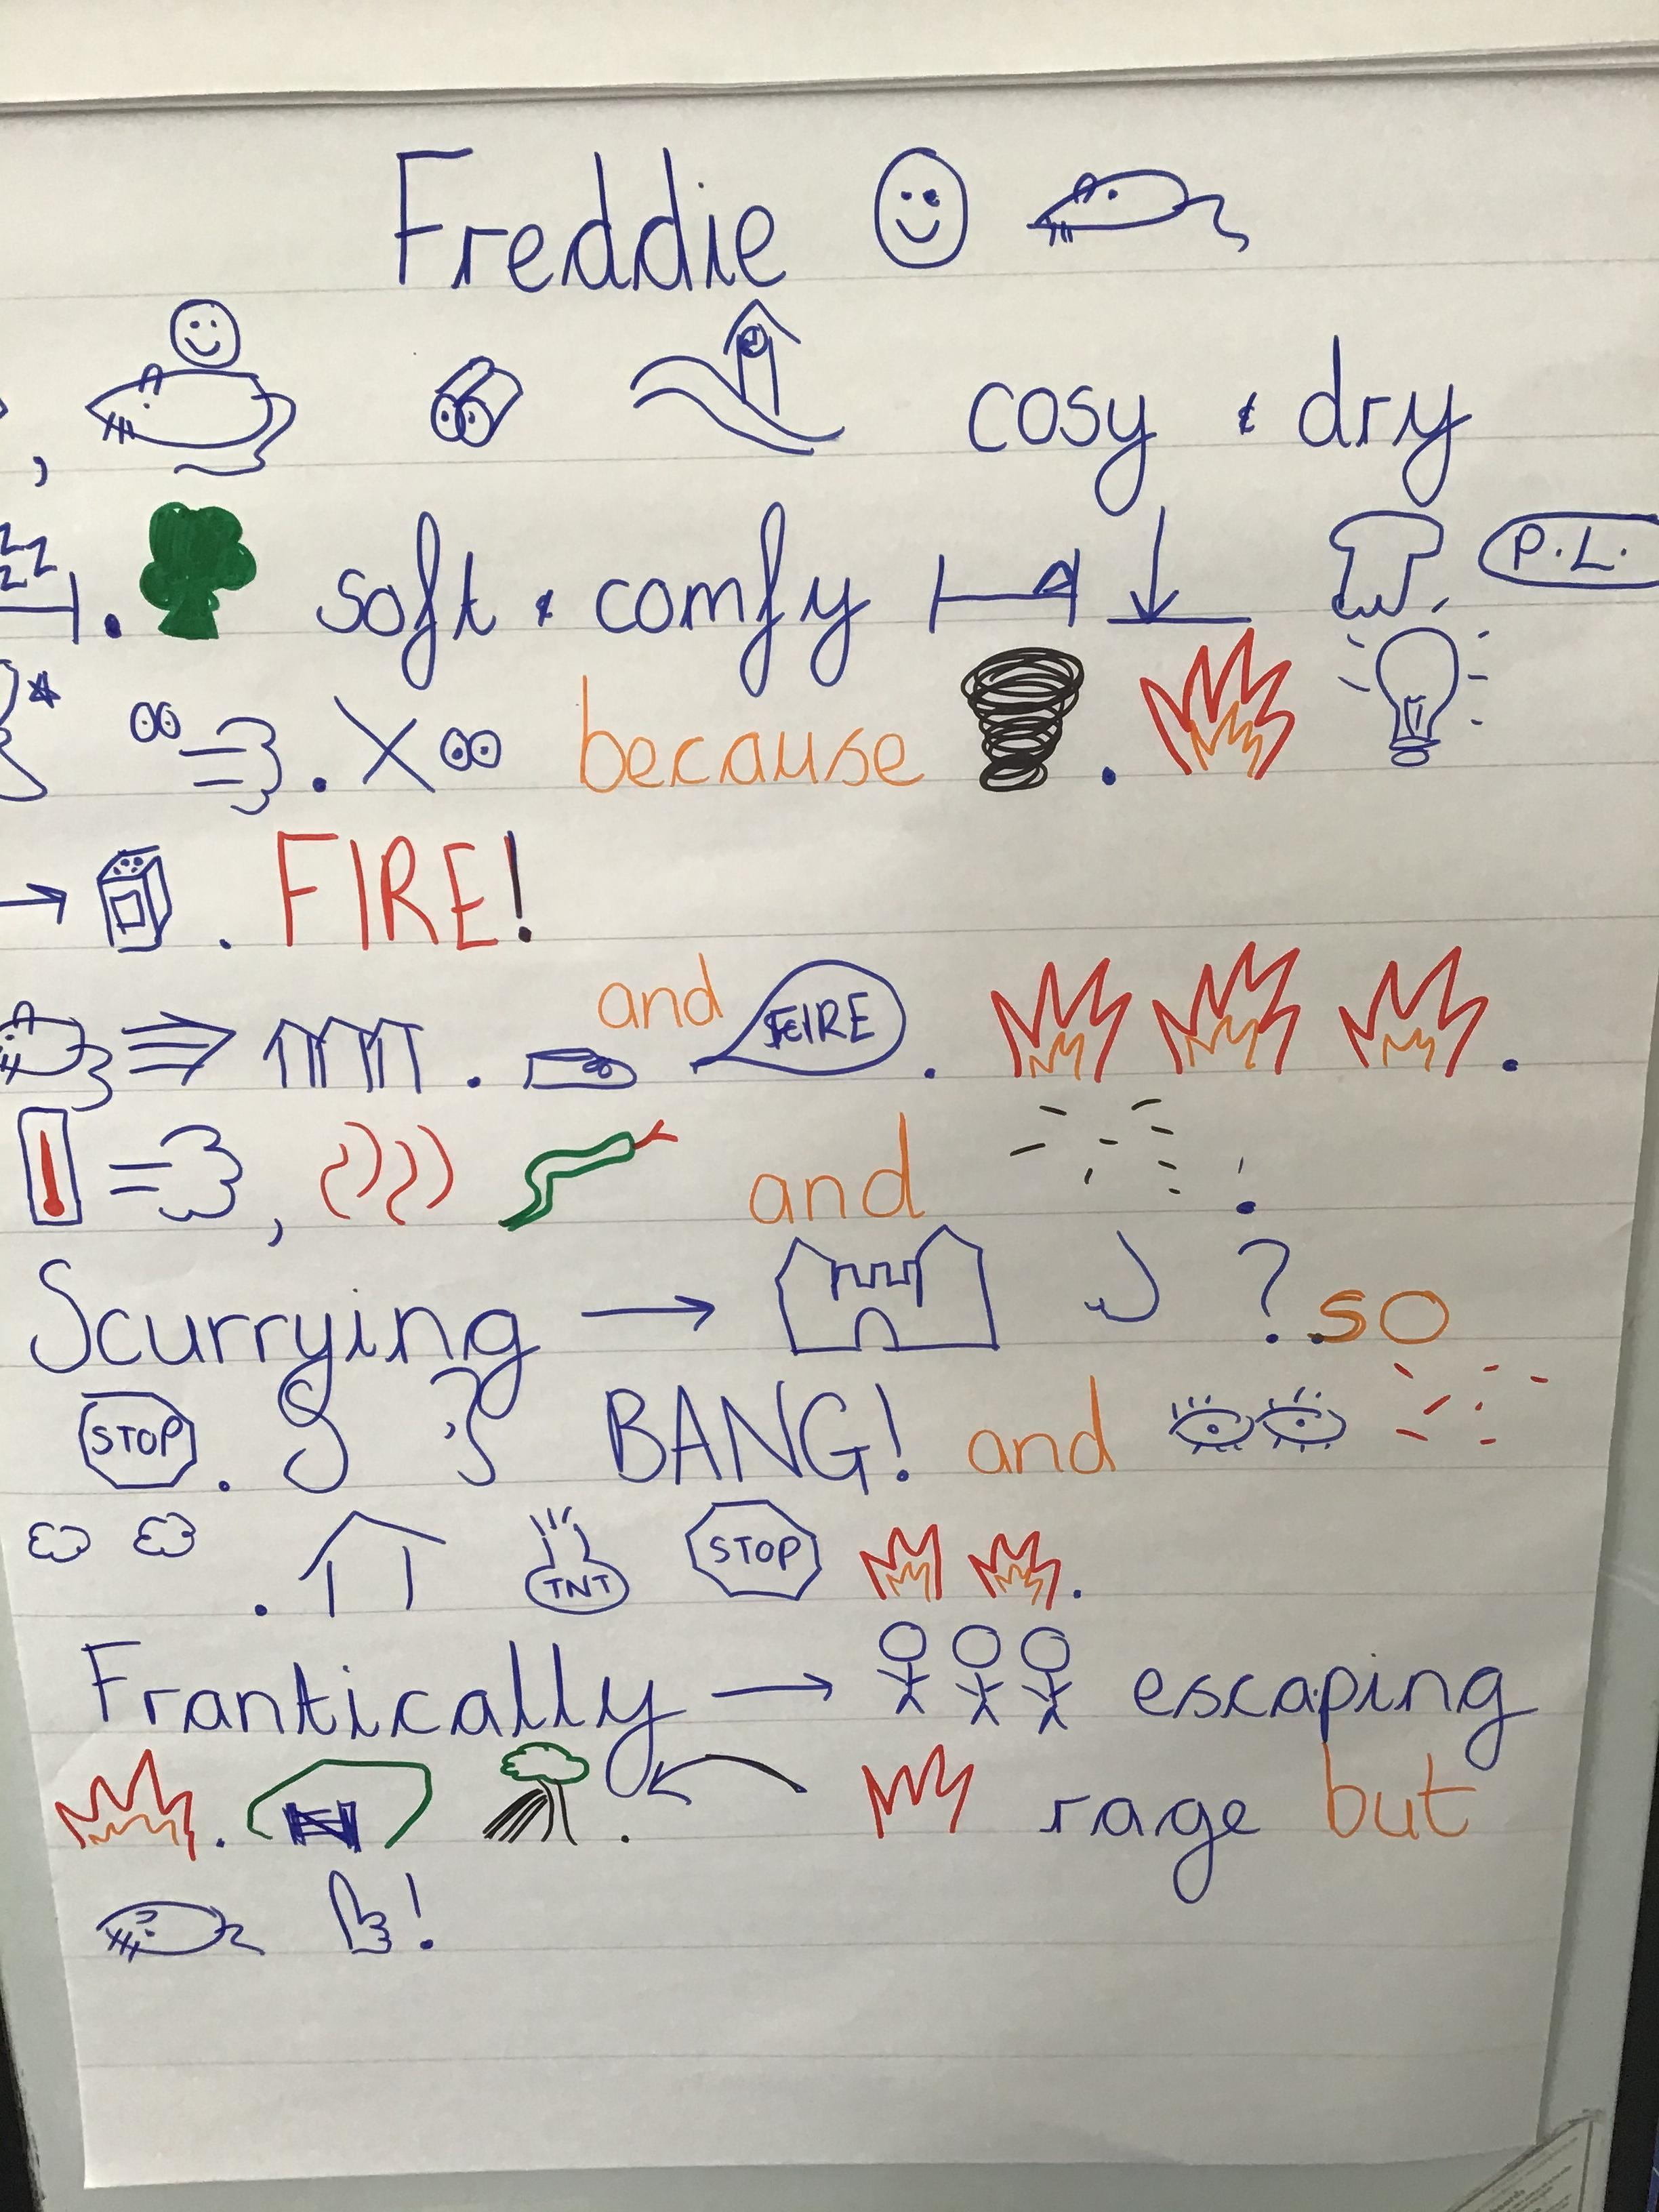 Freddie
, cosy & dry
zz
zz . soft & comfy P.L.
. X because .
. FIRE!
. and FIRE . .
, and .
Scurrying ? . so
STOP . BANG! and
. TNT STOP .
Frantically escaping
. . rage but
!